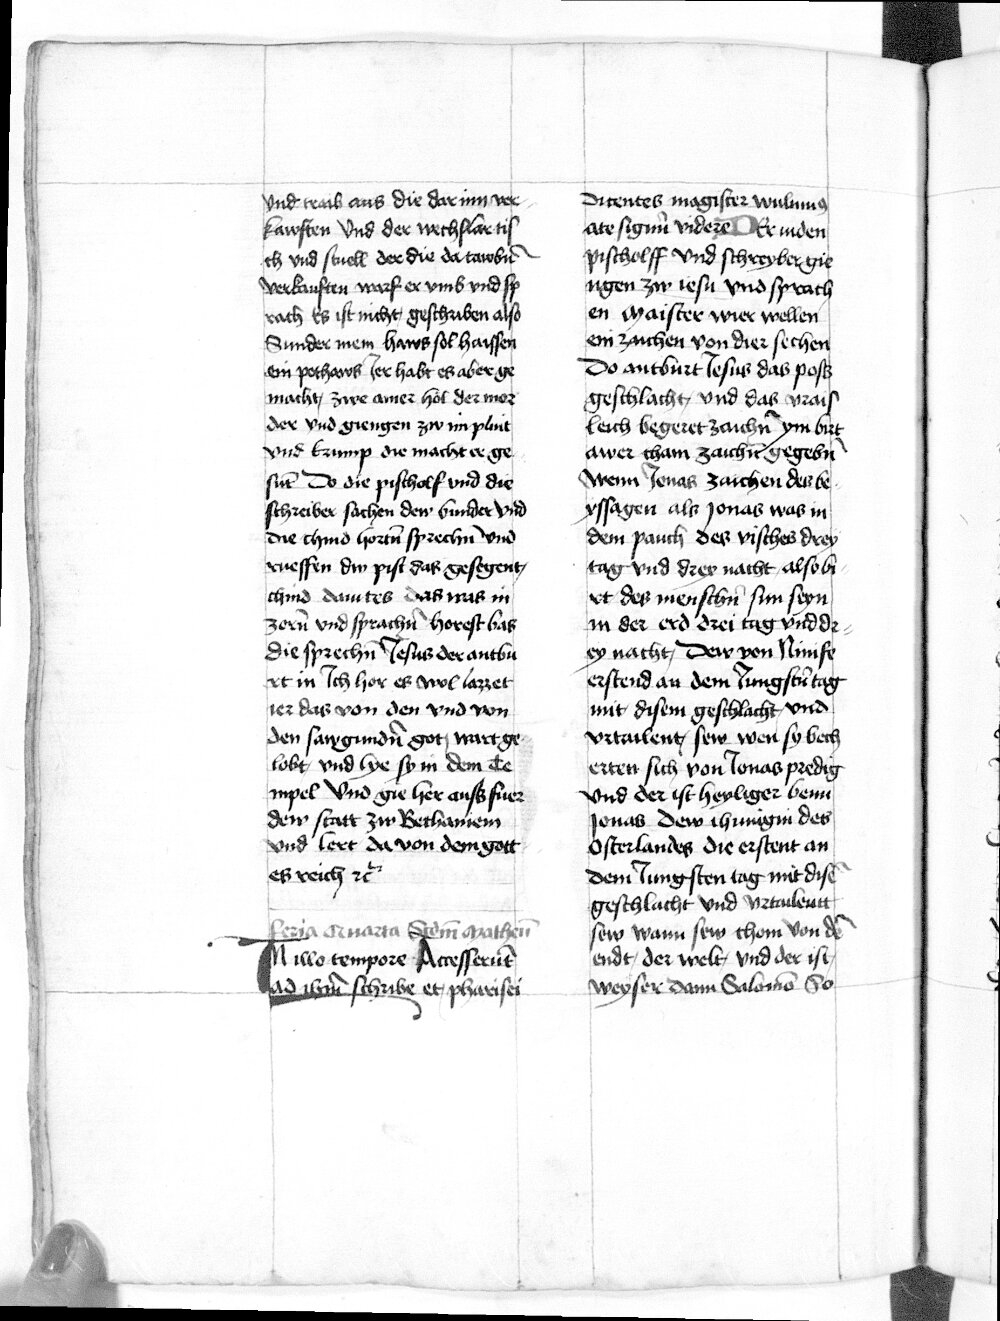 vnd traib aus die dar inn ver
kawften Vnd der wechslär tis
ch vnd stuell der die da tawbn̄
verkauften warf er vmb vnd sp
rach Es ist nicht geschriben also
Sunder mein haws sol haissen
ein pethaws Ier habt es aber ge
macht zwe ainer höl der mor
der vnd giengen zw im plint
vnd krump die macht er ge
sūt Do die pischolf vnd die
schreiber sachen dew bunder Vnd
die chind hortn̄ sprechn̄ vnd
rueffen dw pist das gesegent
chind dauites das was in
zorn̄ vnd sprachn̄ horest bas
die sprechn̄ Iesus der antbu
rt in Ich hor es wol larzet
ier das von den vnd von
den sawgundn̄ got wart ge
lobt vnd lye sy in dem Te
mpel Vnd gie her auss fuer
dew statt zw Bethaniem
vnd lert da von dem gott
es reich ꝛc̄
feria Quarta Scd̄m Matheū
IN illo tempore Accesserūt
ad ihm̄ schribe et pharisei
Dicentes magister wulumꝰ
a te signū videre DEr iuden
pischolff vnd schreyber gie
ngen zw iesu vnd sprach
en Maister wier wellen
ein zaichen von dier sechen
Do antburt Iesus das poss
geschlacht vnd das vrais
leich begeret zaichn̄ ym birt
awer cham zaichn̄ gegebn̄
Wenn Ionas zaichen des be
yssagen als Jonas was in
dem pauch des visches drey
tag vnd drey nacht also bi
rt des menschn̄ sun seyn
in der erd drei tag vnd dr
ey nacht Dew von Ninife
erstend an dem Iungstn̄ tag
mit disem geschlacht vnd
vrtailent sew wen sy bech
erten sich von Ionas predig
Vnd der ist heyliger benn
Jonas Dew chunigin des
Osterlandes die erstent an
dem Iungsten tag mit disē
geschlacht vnd vrtailentt
sew wann sew chom von dē
endt der welt vnd der ist
weyser dann Salomō So